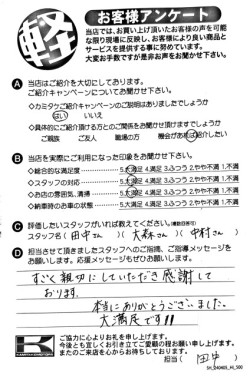 軽
お客様アンケート
当店では、お買い上げ頂いたお客様の声を可能
な限り現場に反映し、お客様により良い商品と
サービスを提供する事に努めています。
大変お手数ですが是非お声をお聞かせ下さい。
A 当店はご紹介を大切にしております。
ご紹介キャンペーンについてお聞かせ下さい。
◇カミタケご紹介キャンペーンのご説明はありましたでしょうか
はい いいえ
◇具体的にご紹介頂ける方とのご関係をお聞かせ頂けますでしょうか
ご親族 ご友人 職場の方 機会があれば紹介したい
B 当店を実際にご利用になった印象をお聞かせ下さい。
◇総合的な満足度 5.大満足 4.満足 3.ふつう 2.やや不満 1.不満
◇スタッフの対応 5.大満足 4.満足 3.ふつう 2.やや不満 1.不満
◇お店の雰囲気、清掃 5.大満足 4.満足 3.ふつう 2.やや不満 1.不満
◇納車時のお車の状態 5.大満足 4.満足 3.ふつう 2.やや不満 1.不満
C 評価したいスタッフがいれば教えてください。(複数回答可)
スタッフ名(田中さん)(大森さん)(中村さん)
D 担当させて頂きましたスタッフへのご指摘、ご指導メッセージを
お願いします。応援メッセージもぜひお願いします。
すごく親切にしていただき感謝して
おります。
本当にありがとうございました。
大満足です!!
ご協力に心よりお礼を申し上げます。
今後とも宜しくお引き立てご愛顧の程お願い申し上げます。
またのご来店を心からお待ちしております。
担当(田中)